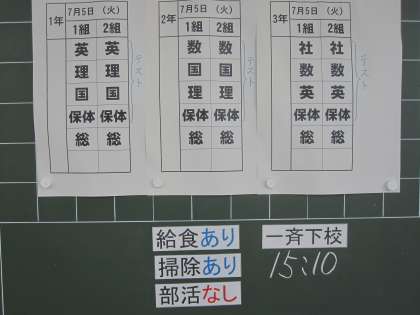 1年 7月5日 (火)
1組 2組
英 英
理 理
国 国
保体 保体
総 総
テスト
2年 7月5日 (火)
1組 2組
数 数
国 国
理 理
保体 保体
総 総
テスト
3年 7月5日 (火)
1組 2組
社 社
数 数
英 英
保体 保体
総 総
テスト
給食あり
掃除あり
部活なし
一斉下校
15:10